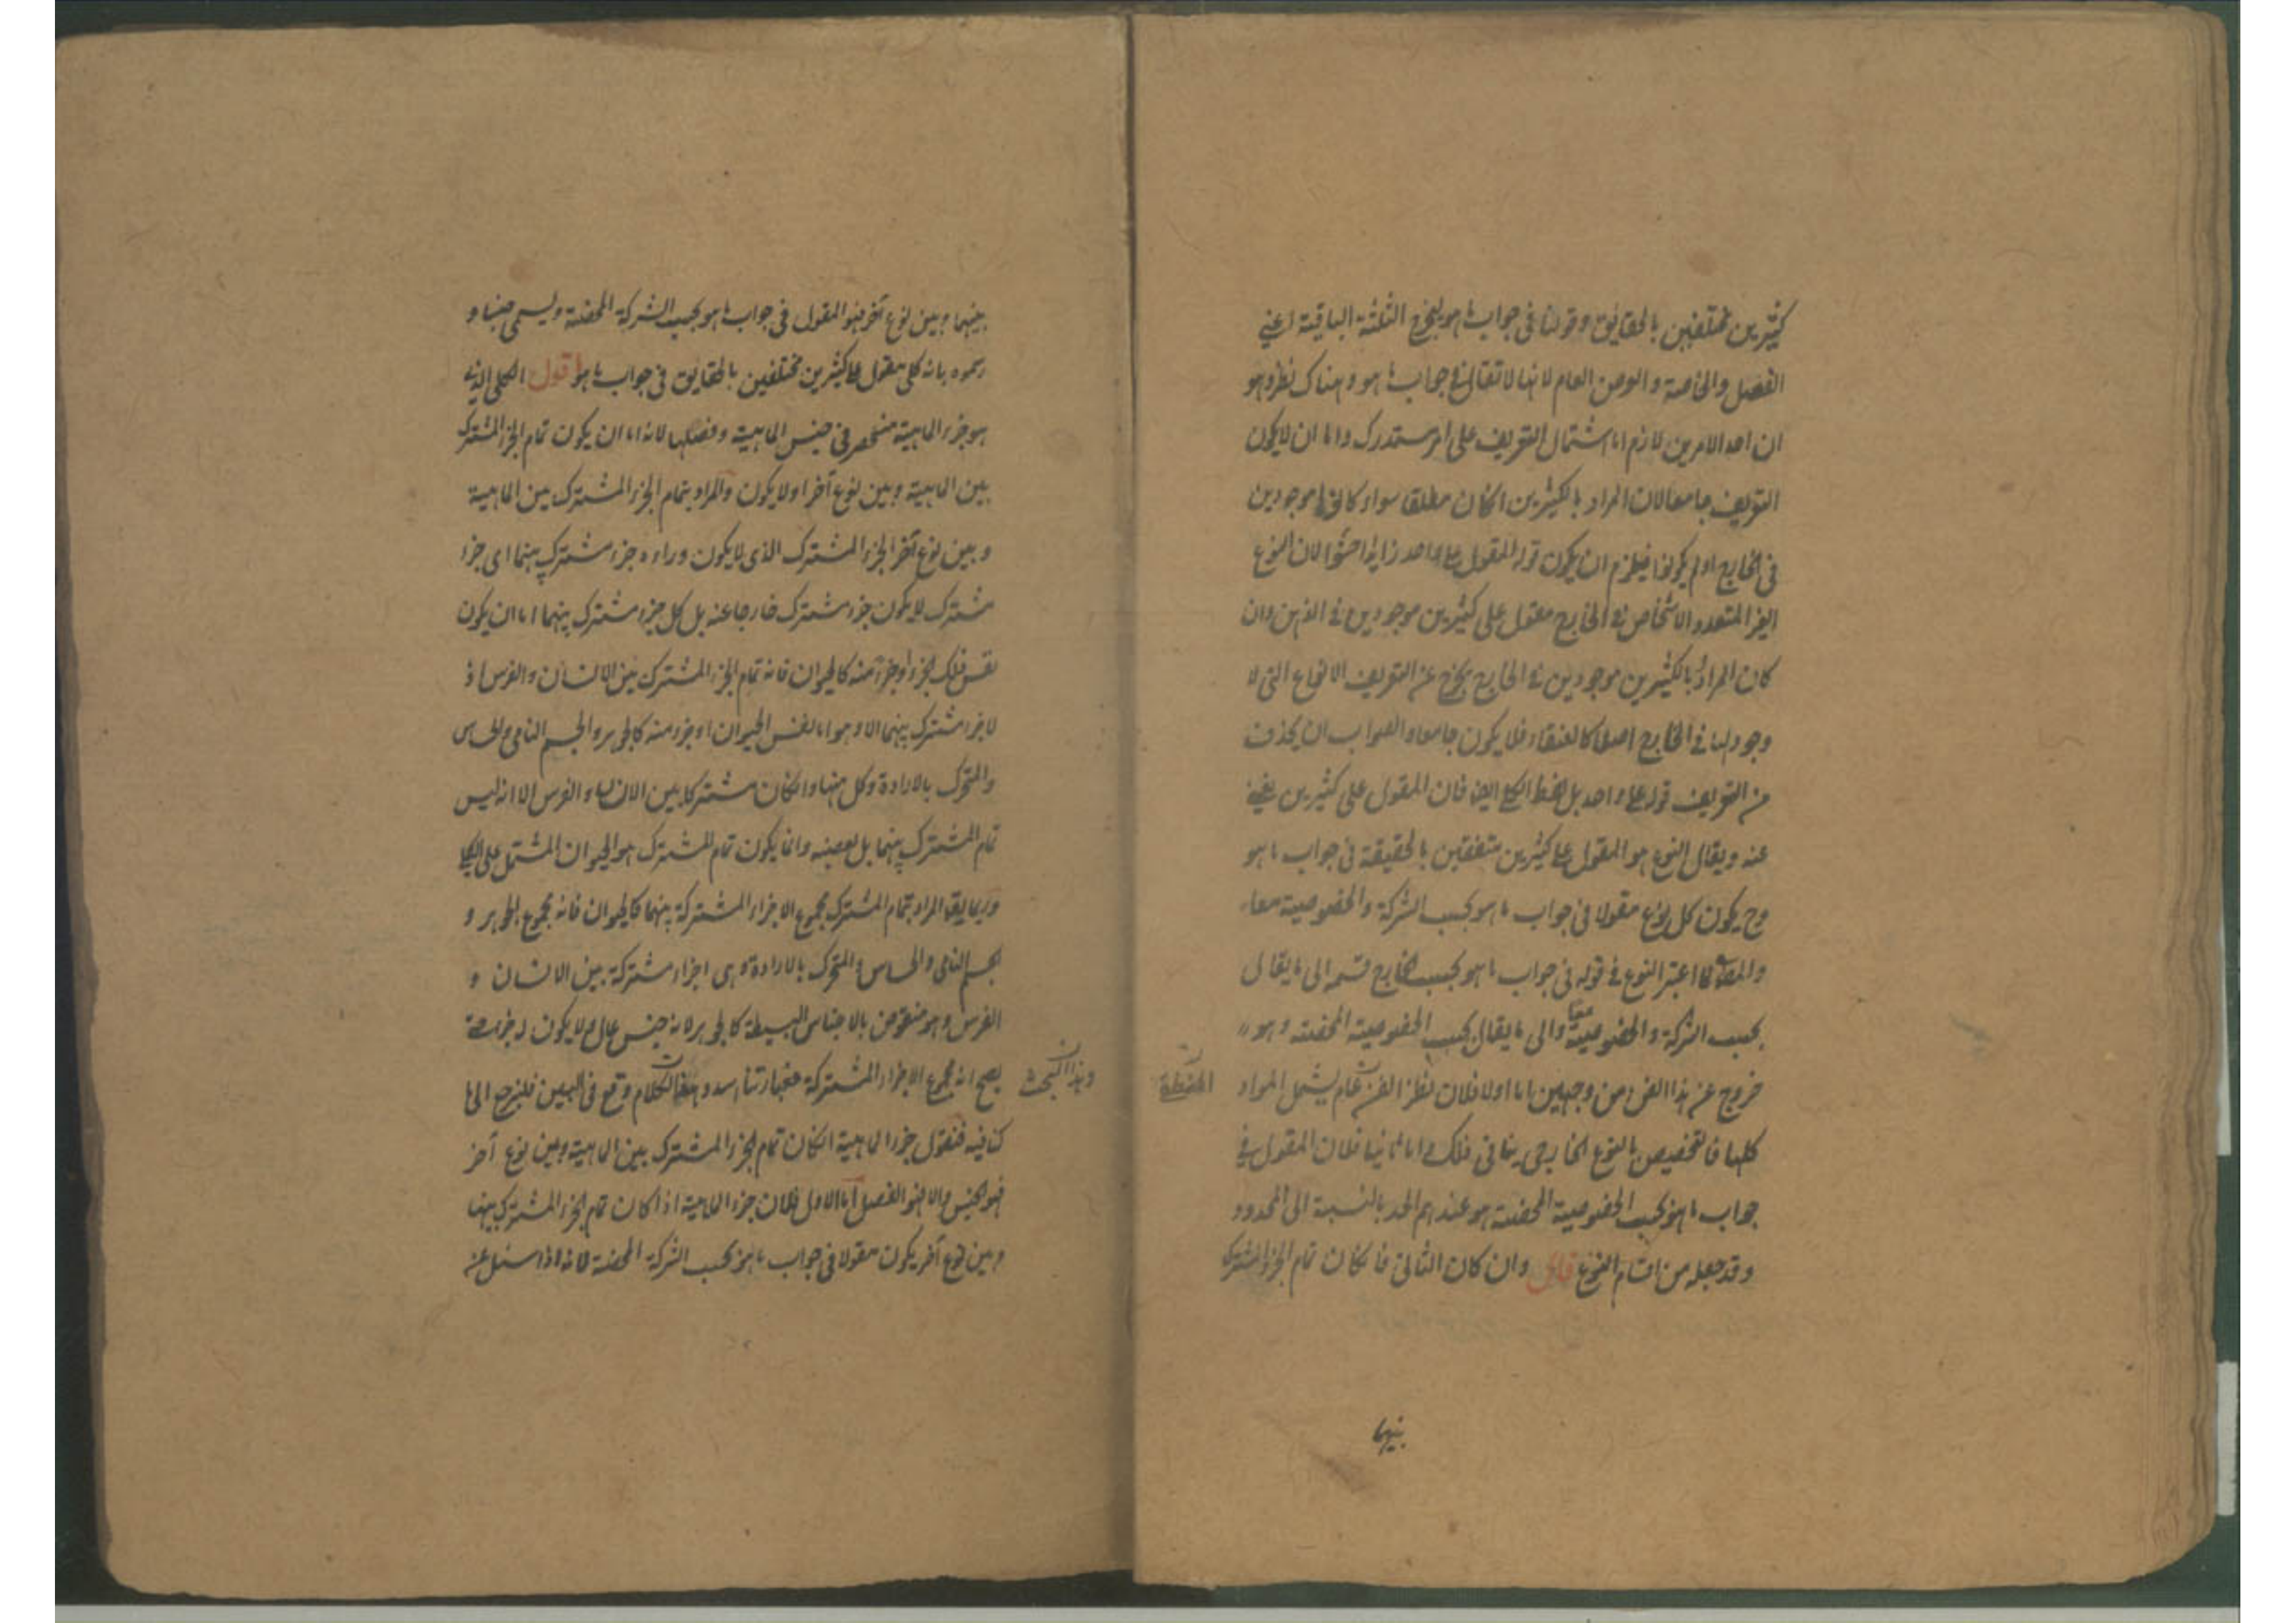 كثيرين مختلفين بالحقايق وقولنا في جواب ما هو يخرج الثلثة الباقية اعني
الفصل والخاصة والعرض العام لانها لا تقال في جواب ما هو وهناك نظر وهو
ان احد الامرين لازم اما اشتمال التعريف على امر مستدرك واما ان لا يكون
التعريف جامعا لان المراد بالكثيرين انكان مطلقا سواء كانوا موجودين
في الخارج او لم يكونوا فيلزم ان يكون قوله المقول على واحد زايدا حشوا لان النوع
الغير المتعدد الاشخاص في الخارج مقول على كثيرين موجودين في الذهن وان
كان المراد بالكثيرين موجودين في الخارج يخرج عن التعريف الانواع التي لا
وجود لها في الخارج اصلا كالعنقاء فلا يكون جامعا والصواب ان يحذف
من التعريف قوله على واحد بل لفظ الكلي ايضا فان المقول على كثيرين يغني
عنه ويقال النوع هو المقول على كثيرين متفقين بالحقيقة في جواب ما هو
وح يكون كل نوع مقولا في جواب ما هو بحسب الشركة والخصوصية معا
والمص لما اعتبر النوع في قوله في جواب ما هو بحسب الخارج قسمه الى ما يقال
بحسب الشركة والخصوصية معا والى ما يقال بحسب الخصوصية المحضة وهو
خروج عن هذا الفن من وجهين اما اولا فلان نظر الفن عام يشمل المواد
كلها فالتخصيص بالنوع الخارجي ينافي ذلك واما ثانيا فلان المقول في
جواب ما هو بحسب الخصوصية المحضة هو عندهم الحد بالنسبة الى المحدود
وقد جعله من اقسام النوع قال وان كان الثاني فان كان تمام الجزء المشترك
بينها
بينهما وبين نوع آخر فهو المقول في جواب ما هو بحسب الشركة المحضة ويسمى جنسا و
رسموه بانه كلي مقول على كثيرين مختلفين بالحقايق في جواب ما هو اقول الكلي الذي
هو جزء الماهية منحصر في جنس الماهية وفصلها لانه اما ان يكون تمام الجزء المشترك
بين الماهية وبين نوع آخر او لا يكون والمراد بتمام الجزء المشترك بين الماهية
وبين نوع آخر الجزء المشترك الذي لا يكون وراءه جزء مشترك بينهما اي جزء
مشترك لا يكون جزء مشترك خارجا عنه بل كل جزء مشترك بينهما اما ان يكون
نفس ذلك الجزء او جزء منه كالحيوان فانه تمام الجزء المشترك بين الانسان والفرس اذ
لا جزء مشترك بينهما الا وهو اما نفس الحيوان او جزء منه كالجوهر والجسم النامي والحساس
والمتحرك بالارادة وكل منها وانكان مشتركا بين الانسان والفرس الا انه ليس
تمام المشترك بينهما بل بعضه وانما يكون تمام المشترك هو الحيوان المشتمل على الكل
وربما يقال المراد بتمام المشترك مجموع الاجزاء المشتركة بينهما كالحيوان فانه مجموع الجوهر و
الجسم النامي والحساس والمتحرك بالارادة وهي اجزاء مشتركة بين الانسان و
الفرس وهو منقوض بالاجناس البسيطة كالجوهر لانه جنس عال ولا يكون له جزء حتى
يصح انه مجموع الاجزاء المشتركة فعبارتنا اسد وهذا الكلام وقع في البين فلنرجع الى ما
كنا فيه فنقول جزء الماهية انكان تمام الجزء المشترك بين الماهية وبين نوع آخر
فهو الجنس والا فهو الفصل اما الاول فلان جزء الماهية اذا كان تمام الجزء المشترك بينها
وبين نوع آخر يكون مقولا في جواب ما هو بحسب الشركة المحضة لانه اذا سئل عن